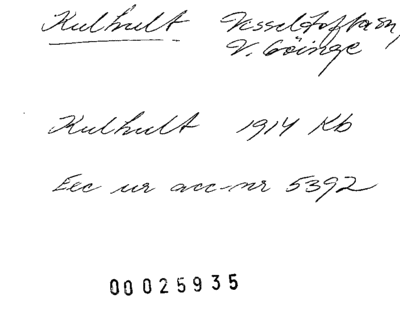 Kulhult Vesseltofta sn,
V. Göinge
Kulhult 1914 Kb
Exc ur acc-nr 5392
00025935